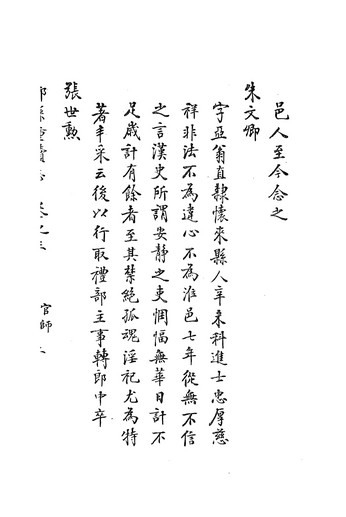 邑人至今念之
朱文卿
字亞翁直隸懷來縣人辛未科進士忠厚慈
祥非法不為違心不為淮邑七年從無不信
之言漢史所謂安靜之吏悃愊無華日計不
足歲計有餘者至其禁絕孤魂淫祀尤為特
著丰采云後以行取禮部主事轉郎中卒
張世勲
官師